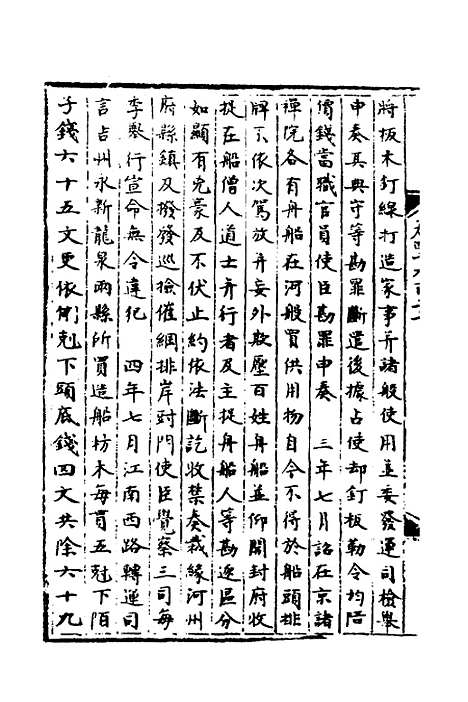 將板木釘線打造家事并諸般使用並委發運司檢舉
申奏其與守等勘罪斷遣後據占使却釘板勒令均陪
價錢當職官員使臣勘罪申奏　三年七月詔在京諸
禪院各有舟船在河般買供用物自今不得於船頭排
牌不依次駕放并妄外欺壓百姓舟船並仰開封府收
捉在船僧人道士并行者及主捉舟船人等勘逐區分
如顯有兇豪及不伏止約依法斷訖收禁奏裁緣河州
府縣鎮及撥發巡撿催綱排岸對門使臣覺察三司每
季舉行宣命無令違犯　四年七月江南西路轉運司
言吉州永新龍泉兩縣所買造船枋木每貫五尅下陌
子錢六十五文更依例剋下頭底錢四文共除六十九